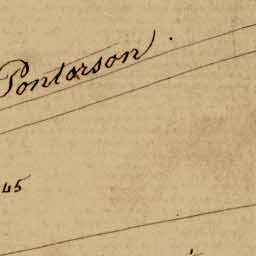 Pontorson.
45